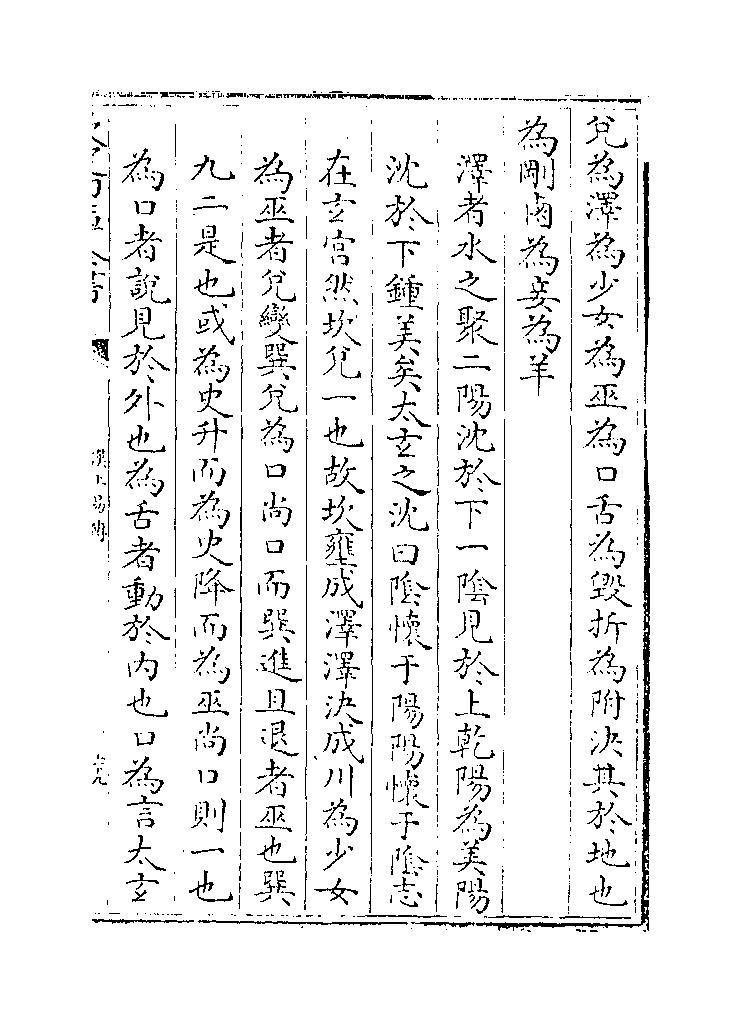 兌為澤為少女為巫為口舌為毀折為附決其於地也
為剛鹵為妾為羊
澤者水之聚二陽沈於下一陰見於上乾陽為美陽
沈於下鍾美矣太玄之沈曰陰懷于陽陽懷于陰志
在玄宮然坎兌一也故坎壅成澤澤決成川為少女
為巫者兌變巽兌為口尚口而巽進且退者巫也巽
九二是也或為史升而為史降而為巫尚口則一也
為口者說見於外也為舌者動於內也口為言太玄
漢上易傳